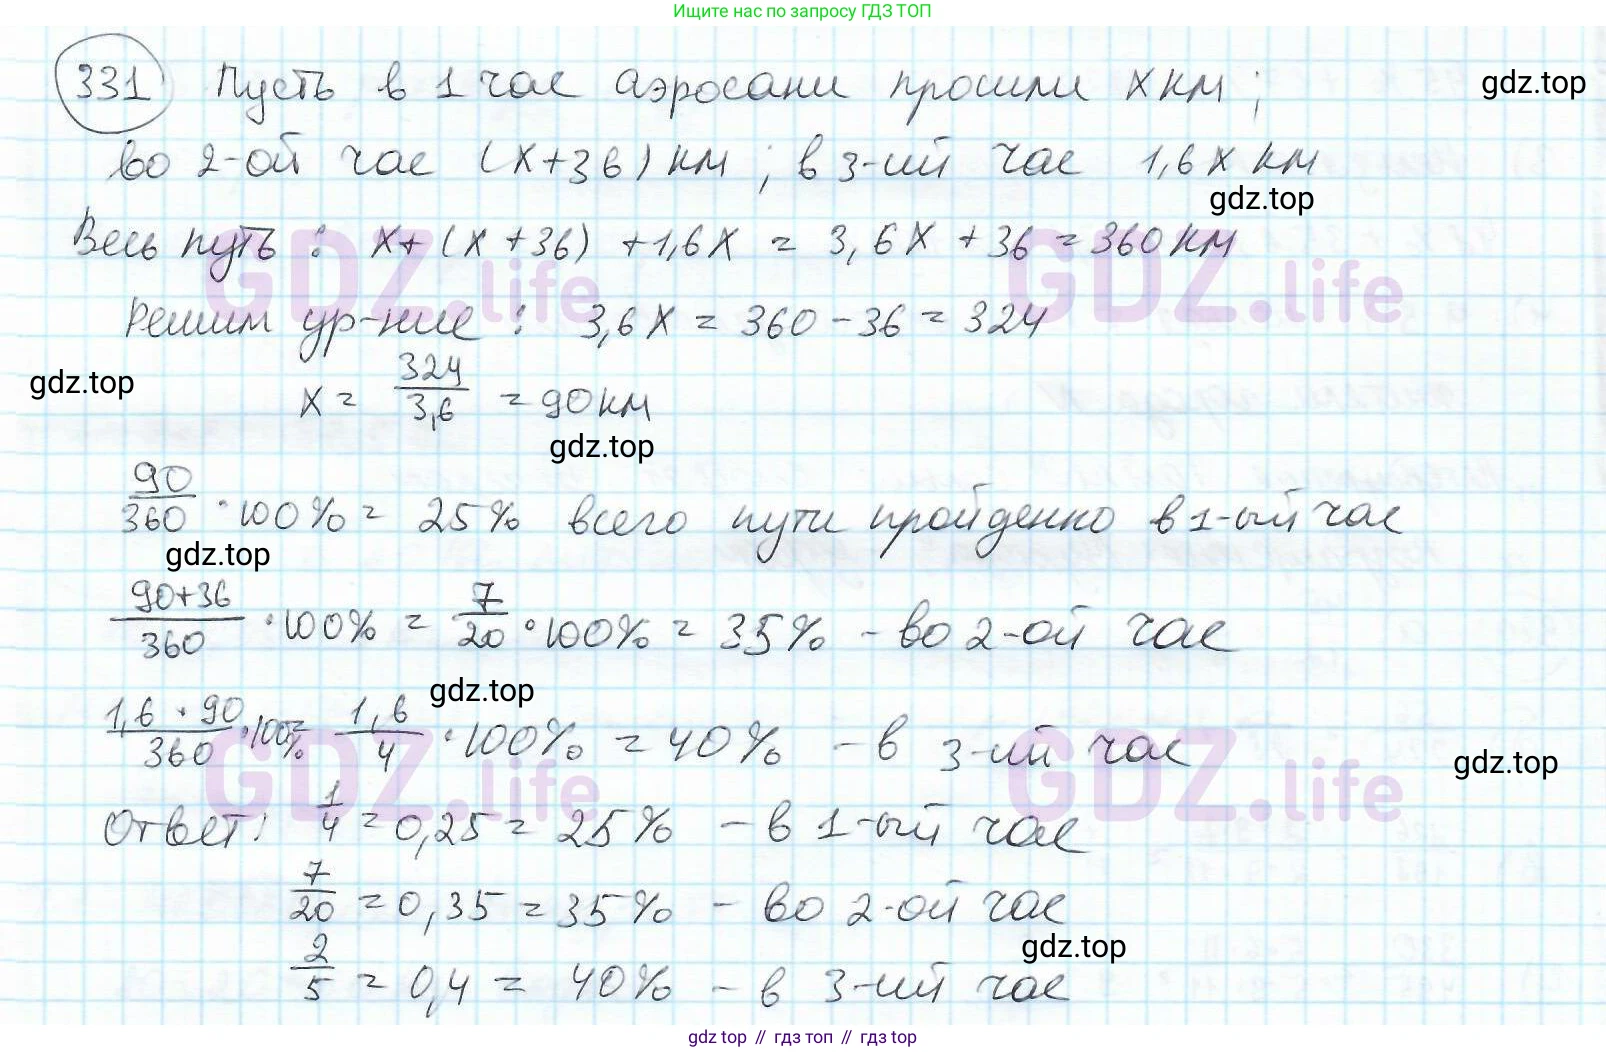 Ищите нас по запросу ГДЗ ТОП
331 Пусть в 1 час аэросани прошли x км;
gdz.top
во 2-ой час (x+36) км; в 3-ий час 1,6x км
gdz.top
Весь путь: x+(x+36)+1,6x = 3,6x+36=360 км
GDZ.life GDZ.life
Решим ур-ние: 3,6x = 360-36 = 324
gdz.top
x = 324/3,6 = 90 км
gdz.top
90/360 · 100% = 25% всего пути пройденно в 1-ый час
gdz.top
90+36/360 · 100% = 7/20 · 100% = 35% - во 2-ой час
gdz.top
1,6·90/360 · 100% = 1,6/4 · 100% = 40% - в 3-ий час
gdz.top
GDZ.life GDZ.life
Ответ: 1/4 = 0,25 = 25% - в 1-ый час
7/20 = 0,35 = 35% - во 2-ой час
gdz.top
2/5 = 0,4 = 40% - в 3-ий час
gdz top // гдз топ // гдз top